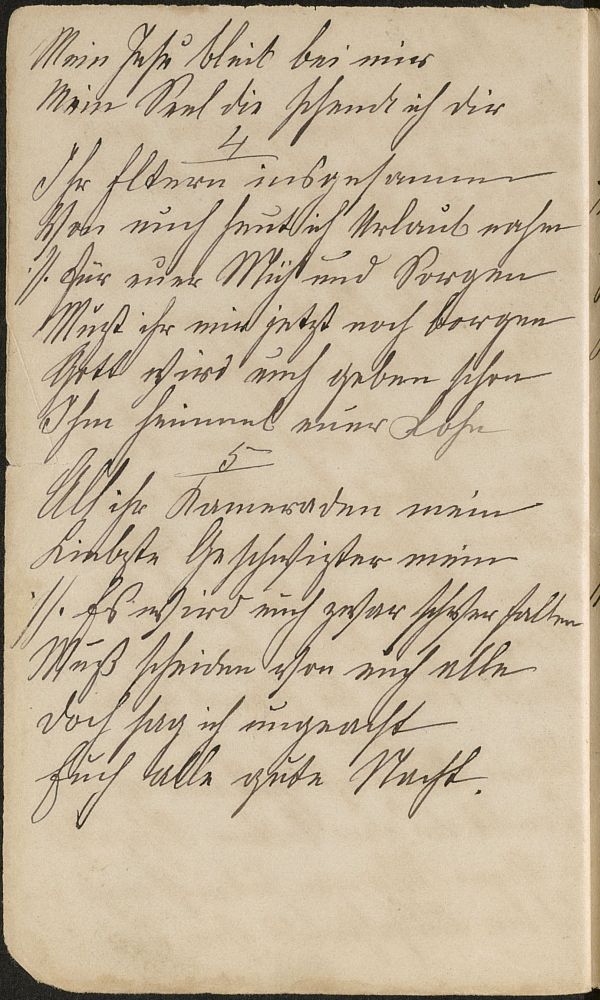 Mein Jesu bleib bei mir
Mein Seel die schenk ich dir
4
Ihr Eltern insgesammen
Von euch heut ich Urlaub nahm
:/: Für euer Müh und Sorgen
Mußt ihr mir jetzt noch borgen
Gott wird euch geben schon
Ihm himmel euer Lohn
5
All ihr Kameraden mein
Liebste Geschwister mein
:/: Es wird euch zwar schwer fallen
Muß scheiden von euch alle
doch sag ich ungeacht
Euch alle gute Nacht.